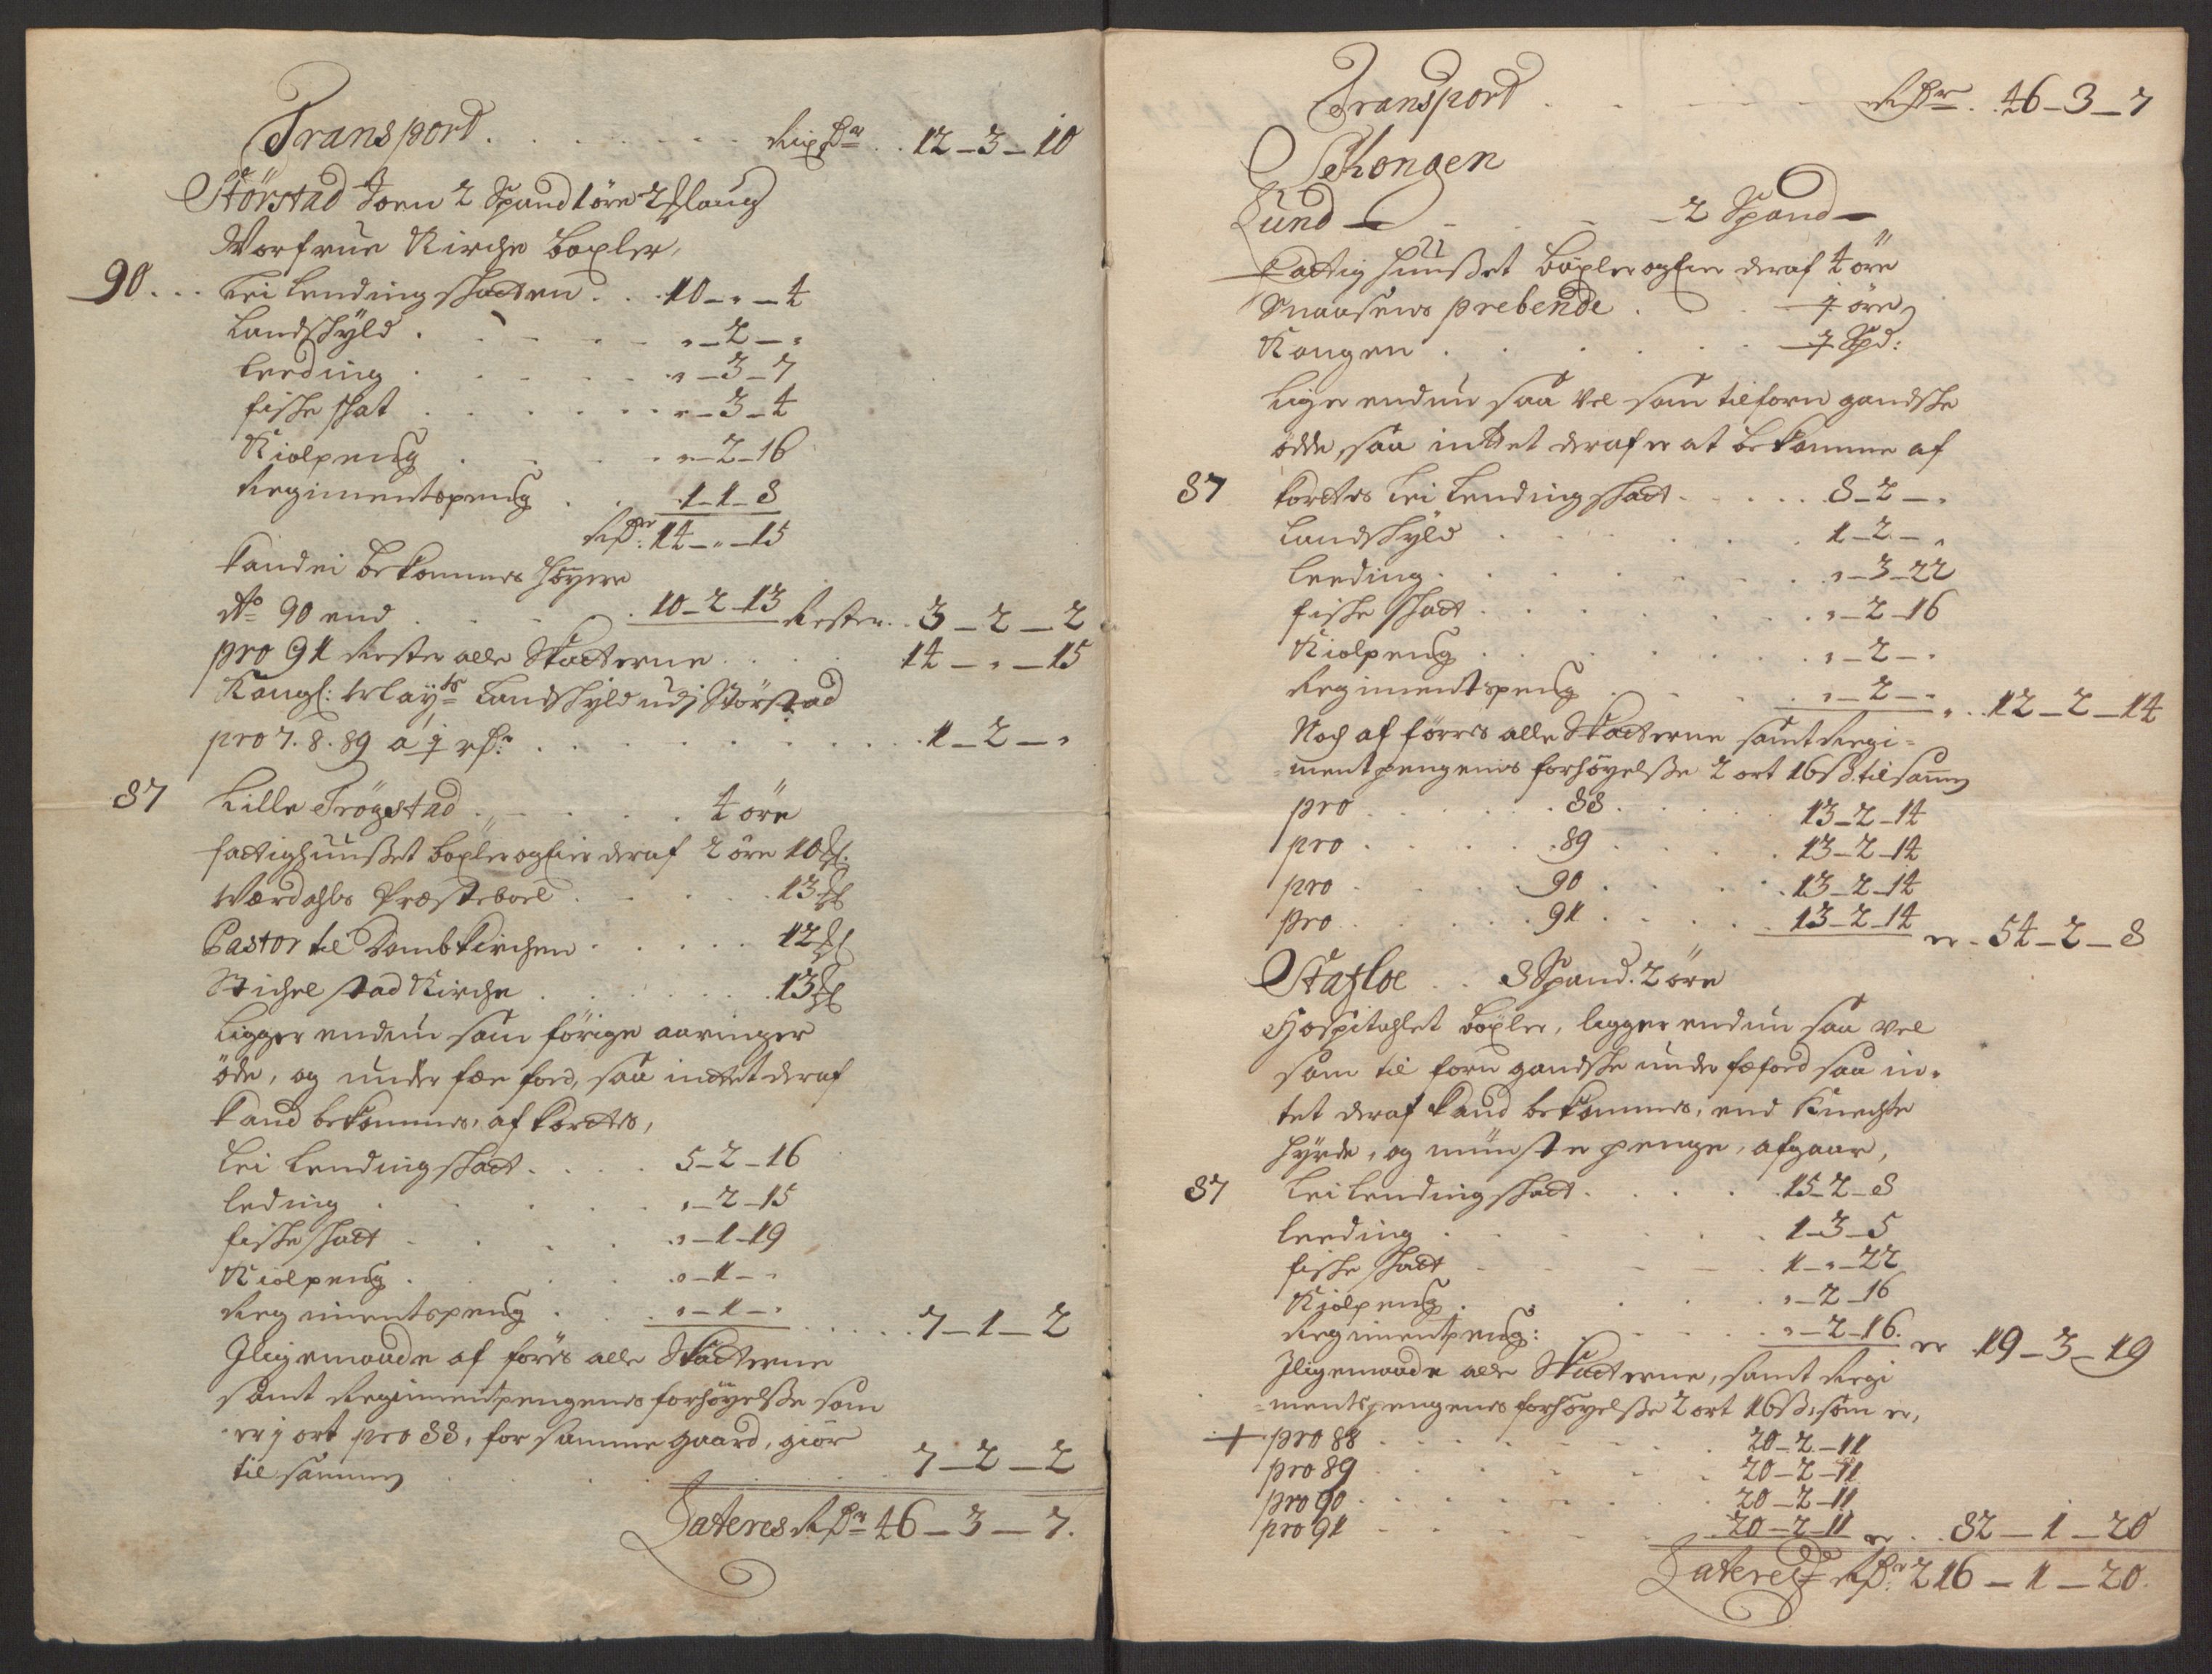 Transport . . . . . . Rixdr . . 12 – 3 – 10
Störstad Joen 2 Spand 1 öre 2 Klaug
Worfrue Kirche boxler,
90 . . . Leilendingskatten . . . 10 – " – 4
Landskyld . . . . . " – 2 – "
Leeding . . . . . " – 3 – 7
fiske skat . . . . . " – 3 – 4
Kiolpeng . . . . . " – 2 – 16
Regimentspeng . . . 1 – 1 – 8
Rdr: 14 – " – 15
kand ei bekommes höyere
Ao 90 end . . . 10 – 2 – 13 Rester . . 3 – 2 – 2
pro 91 Rester alle Skatterne . . . . 14 – " – 15
Kongl: May:ts Landskyld udj Störstad
pro 7. 8. 89 á ½ rdr . . . . . . . 1 – 2 – "
87 Lille Trögstad . . . . . 4 öre
fattighuusset boxler og Eier deraf 2 öre 10
Værdahls Præsteboel . . . . 13
Pastor til Dombkirchen . . . . 12
Stichelstad Kirche . . . . . 13
Ligger endnu som förige aaringer
öde, og under fæe foed, saa inttet deraf
kand bekommes, afkortes,
Leilendingskatt . . . . 5 – 2 – 16
leding . . . . . " – 2 – 15
fiske skatt . . . . . " – 1 – 19
Kiolpeng . . . . . " – 1 – "
Regimentspeng . . . " – 1 – " . . . . 7 – 1 – 2
Iligemaade af föris alle Skatterne
samt Regimentspengenes forhöyelsse som
er j ort pro 88, for samme gaard, giör
til sammen . . . . . . 7 – 2 – 2
Lateres Rdr 46 – 3 – 7.
Transport . . . . . . Rdr . . 46 – 3 – 7
Schongen
Lund – . . . – 2 Spand –
Fattighuusset boxler og Eier deraf 4 öre
Snaasens prebende . . . ½ öre
Kongen . . . . . . ½ Spd:
Liger endnu saa vel som tilforn gandske
ödde, saa inttet deraf er at bekomme af
87 kortes Leilendingskatt . . . . 8 – 2 – "
Landskyld . . . . . . 1 – 2 – "
Leeding . . . . . . " – 3 – 22
fiske skatt . . . . . . " – 2 – 16
Kiolpeng . . . . . . " – 2 – "
Regimentspeng . . . . " – 2 – " " . . 12 – 2 – 14
Noch afförres alle Skatterne samt Regi-
=mentpengenes forhöyelsse 2 ort 16 s. tilsamen
pro . . . . . 88 . . . . 13 – 2 – 14
pro . . . . . 89 . . . . 13 – 2 – 14
pro . . . . . 90 . . . . 13 – 2 – 14
pro . . . . . 91 . . . . 13 – 2 – 14 er . 54 – 2 – 8
Stafloe . . 8 Spand. 2 öre
Hospitahlet boxler, ligger endnu saa vel
som til forn gandske under fæfoed saa in-
tet deraf kand bekommes, end Knechte
hyrde, og mönster penge, afgaar,
87 Leilendingskatt . . . . 15 – 2 – 8
Leeding . . . . . . 1 – 3 – 5
fiske skatt . . . . . 1 – " – 22
Kiolpeng . . . . . " – 2 – 16
Regimentpeng: . . . . " – 2 – 16. er 19 – 3 – 19
Iligemaade alle Skatterne, samt Regi
=mentspengenes forhöyelsse 2 ort 16 s, som er,
+ pro 88 . . . . . . 20 – 2 – 11
pro 89 . . . . . . 20 – 2 – 11
pro 90 . . . . . . 20 – 2 – 11
pro 91 . . . . . . 20 – 2 – 11 er . . 82 – 1 – 20
Lateres Rdr 216 – 1 – 20.